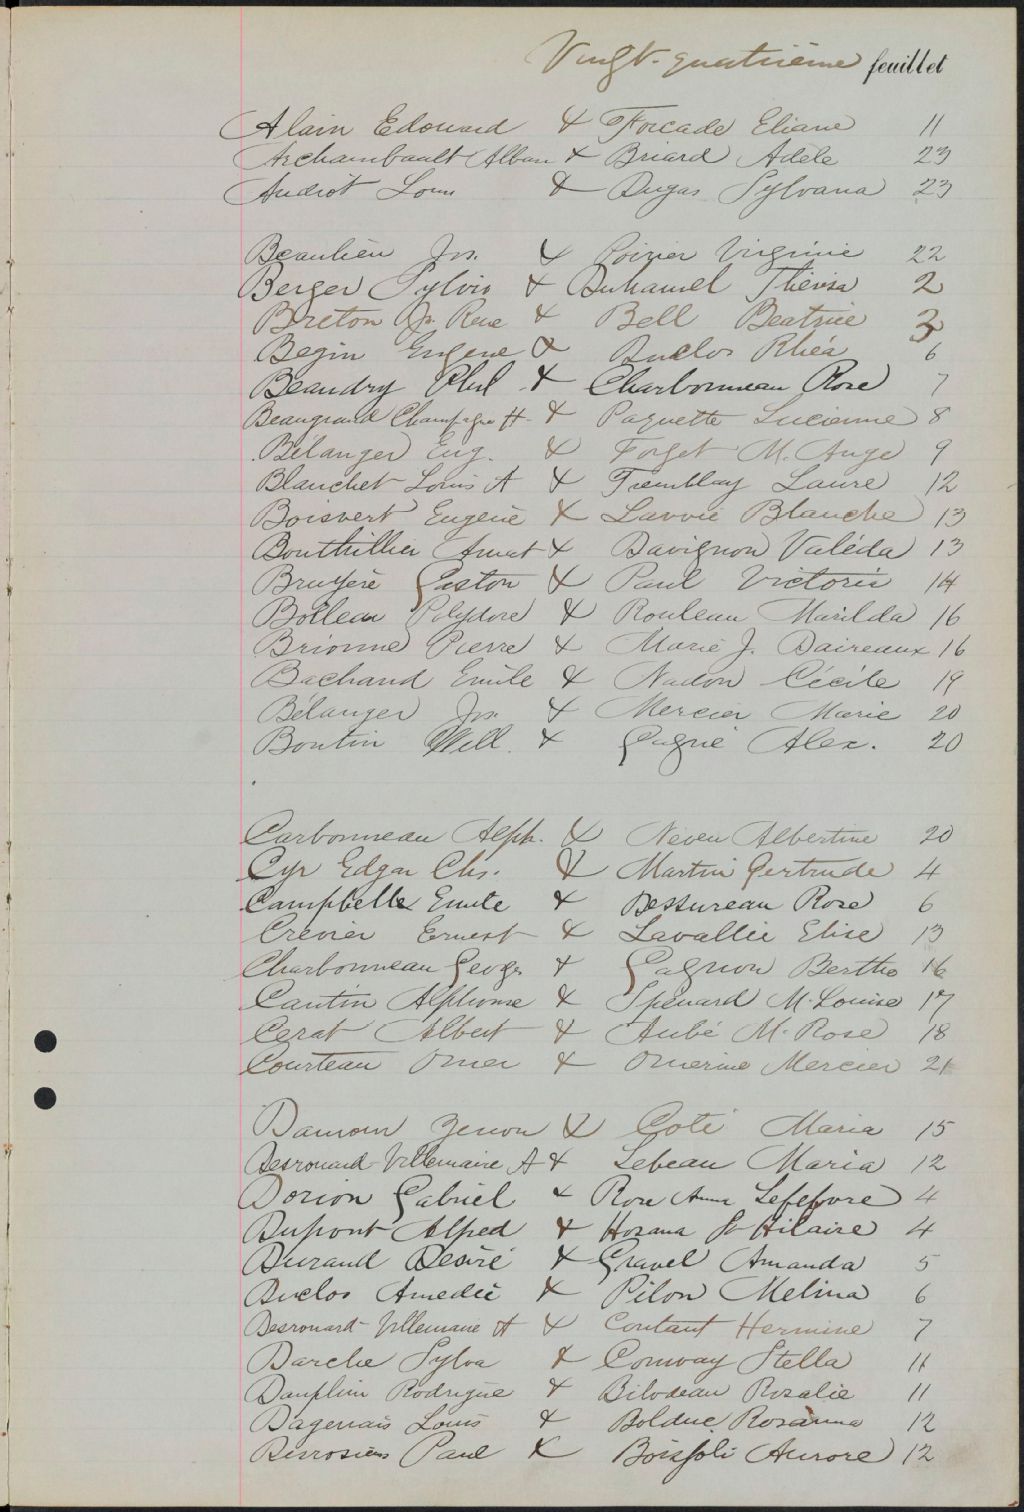 Vingt-quatrième feuillet
Alain Edouard & Forcade Eliane 11
Archambault Alban & Briard Adèle 23
Audiot Louis & Dugas Sylvana 23
Beaulieu Jos. & Poirier Virginie 22
Berger Sylvio & Duhamel Thérèsa 2
Breton Js. Rene & Bell Beatrice 3
Begin Eugene & Duclos Rhéa 6
Beaudry Phil & Charbonneau Rose 7
Beaugrand Champagne H. & Paquette Lucienne 8
Bélanger Eug. & Forget M. Ange 9
Blanchet Louis A & Tremblay Laure 12
Boisvert Eugène & Lavoie Blanche 13
Bouthillier Amat & Davignon Valéda 13
Bruyère Gaston & Paul Victoria 14
Boileau Polydore & Rouleau Marilda 16
Brionne Pierre & Marie J. Daireaux 16
Bachand Emile & Nadon Cécile 19
Bélanger Jos. & Mercier Marie 20
Boutin Will. & Gagné Alex. 20
Carbonneau Alph. & Neveu Albertine 20
Cyr Edgar Chs. & Martin Gertrude 4
Campbelle Emile & Bessureau Rose 6
Crevier Ernest & Lavallée Elise 13
Charbonneau Georges & Gagnon Berthe 16
Cantin Alphonse & Spénard M. Louise 17
Cerat Albert & Aubé M. Rose 18
Courteau Omer & Omerine Mercier 21
Damour Zenon & Coté Maria 15
Desrouard-Villemaire A & Lebeau Maria 12
Dorion Gabriel & Rose Anna Lefebvre 4
Dupont Alfred & Hozana St Hilaire 4
Durand Désiré & Gravel Amanda 5
Duclos Amedée & Pilon Melina 6
Desrouard-Villemaire A & Coutant Hermine 7
Darche Sylva & Conway Stella 11
Dauphin Rodrigue & Bilodeau Rozalie 11
Dagenais Louis & Bolduc Rosanna 12
Paul & Aurore 12